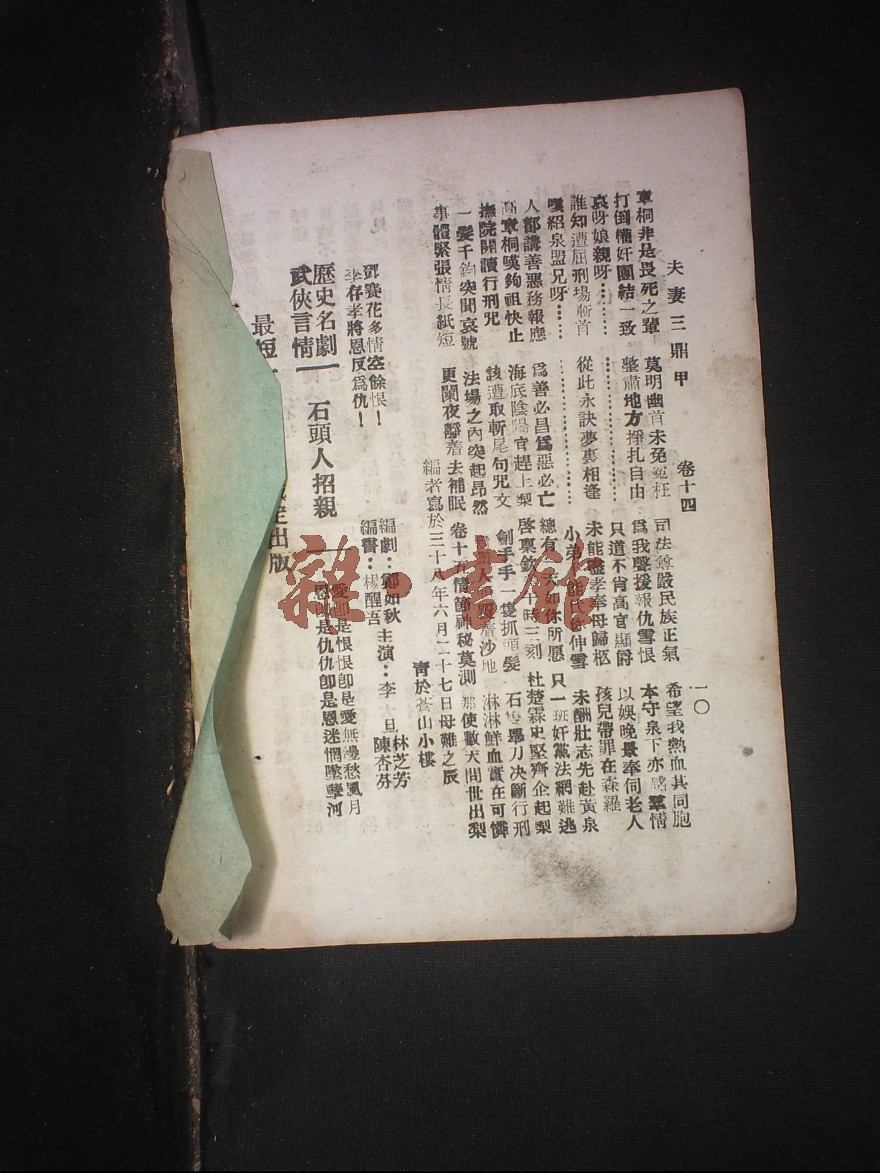 夫妻三鼎甲 卷十四 一〇
章桐非是畏死之輩 莫明幽首未免冤枉 司法尊嚴民族正氣 希望我熱血其同胞
打倒權奸團結一致 整肅地方掙扎自由 為我聲援報仇雪恨 本守泉下亦感羣情
哀呀娘親呀……… ……………… 只道不肖高官顯爵 以娛晚景奉伺老人
誰知遭屈刑場斬首 從此永訣夢裏相逢 未能盡孝奉母歸柩 孩兒帶罪在森羅
嘆紹泉盟兄呀…… ……………… 小弟 伸雪 未酬壯志先赴黃泉
人都講善惡務報應 為善必昌為惡必亡 總有 如你所愿 只一班奸黨法網難逃
高章桐嘆夠祖快止 海底陰陽官趕上梨 啓稟欽 午時三刻 杜楚霖史堅齊企起梨
撫院開讀行刑咒 該遭取斬尾句咒文 劊手手一隻抓頭髮 石 單刀决斷行刑
一髮千鈞突聞哀號 法場之內突起昂然 沙地 淋淋鮮血實在可憐
事體緊張情長紙短 更闌夜靜着去補眠 卷十五情節神秘莫測 那使數天問世出梨
編者寫於三十八年六月二十七日母難之辰
靑於蒼山小樓
鄧賽花多情空餘恨！
李存孝將恩反爲仇！
歷史名劇
武俠言情
石頭人招親
編劇：鄭如秋 主演：李 旦 林芝芳
編書：楊醒吾 陳杏芬
愛卽是恨恨卽是愛無邊愁風月
恩卽是仇仇卽是恩迷惘墜孽河
最短
出版
雜·書館